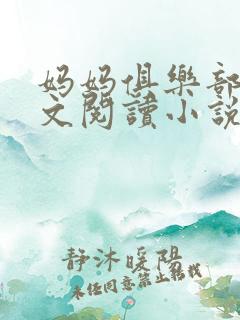 妈妈俱樂部
文閱讀小說
静沐暖陽
未经同意禁止转载